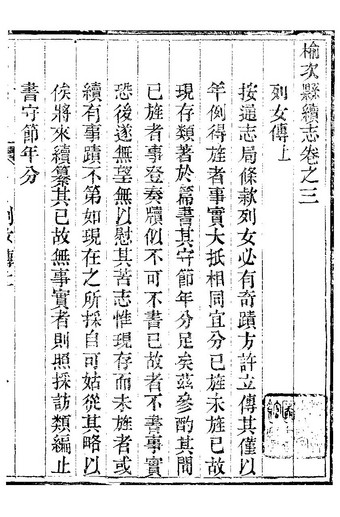 榆次縣續志卷之三
列女傳上
按通志局條欵列女必有奇蹟方許立傳其僅以
年例得旌者事實大抵相同宜分已旌未旌已故
現存類著於篇書其守節年分足矣茲參酌其間
已旌者事登奏牘似不可不書已故者不書事實
恐後遂無望無以慰其苦志惟現存而未旌者或
續有事蹟不第如現在之所採自可姑從其略以
俟將來續纂其已故無事實者則照採訪類編止
書守節年分